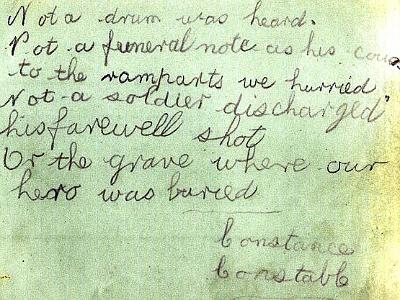 Not a drum was heard.
Not a funeral note as his cou
to the ramparts we hurried
Not a soldier discharged
his farewell shot
Or the grave where our
hero was buried
Constance
Constable